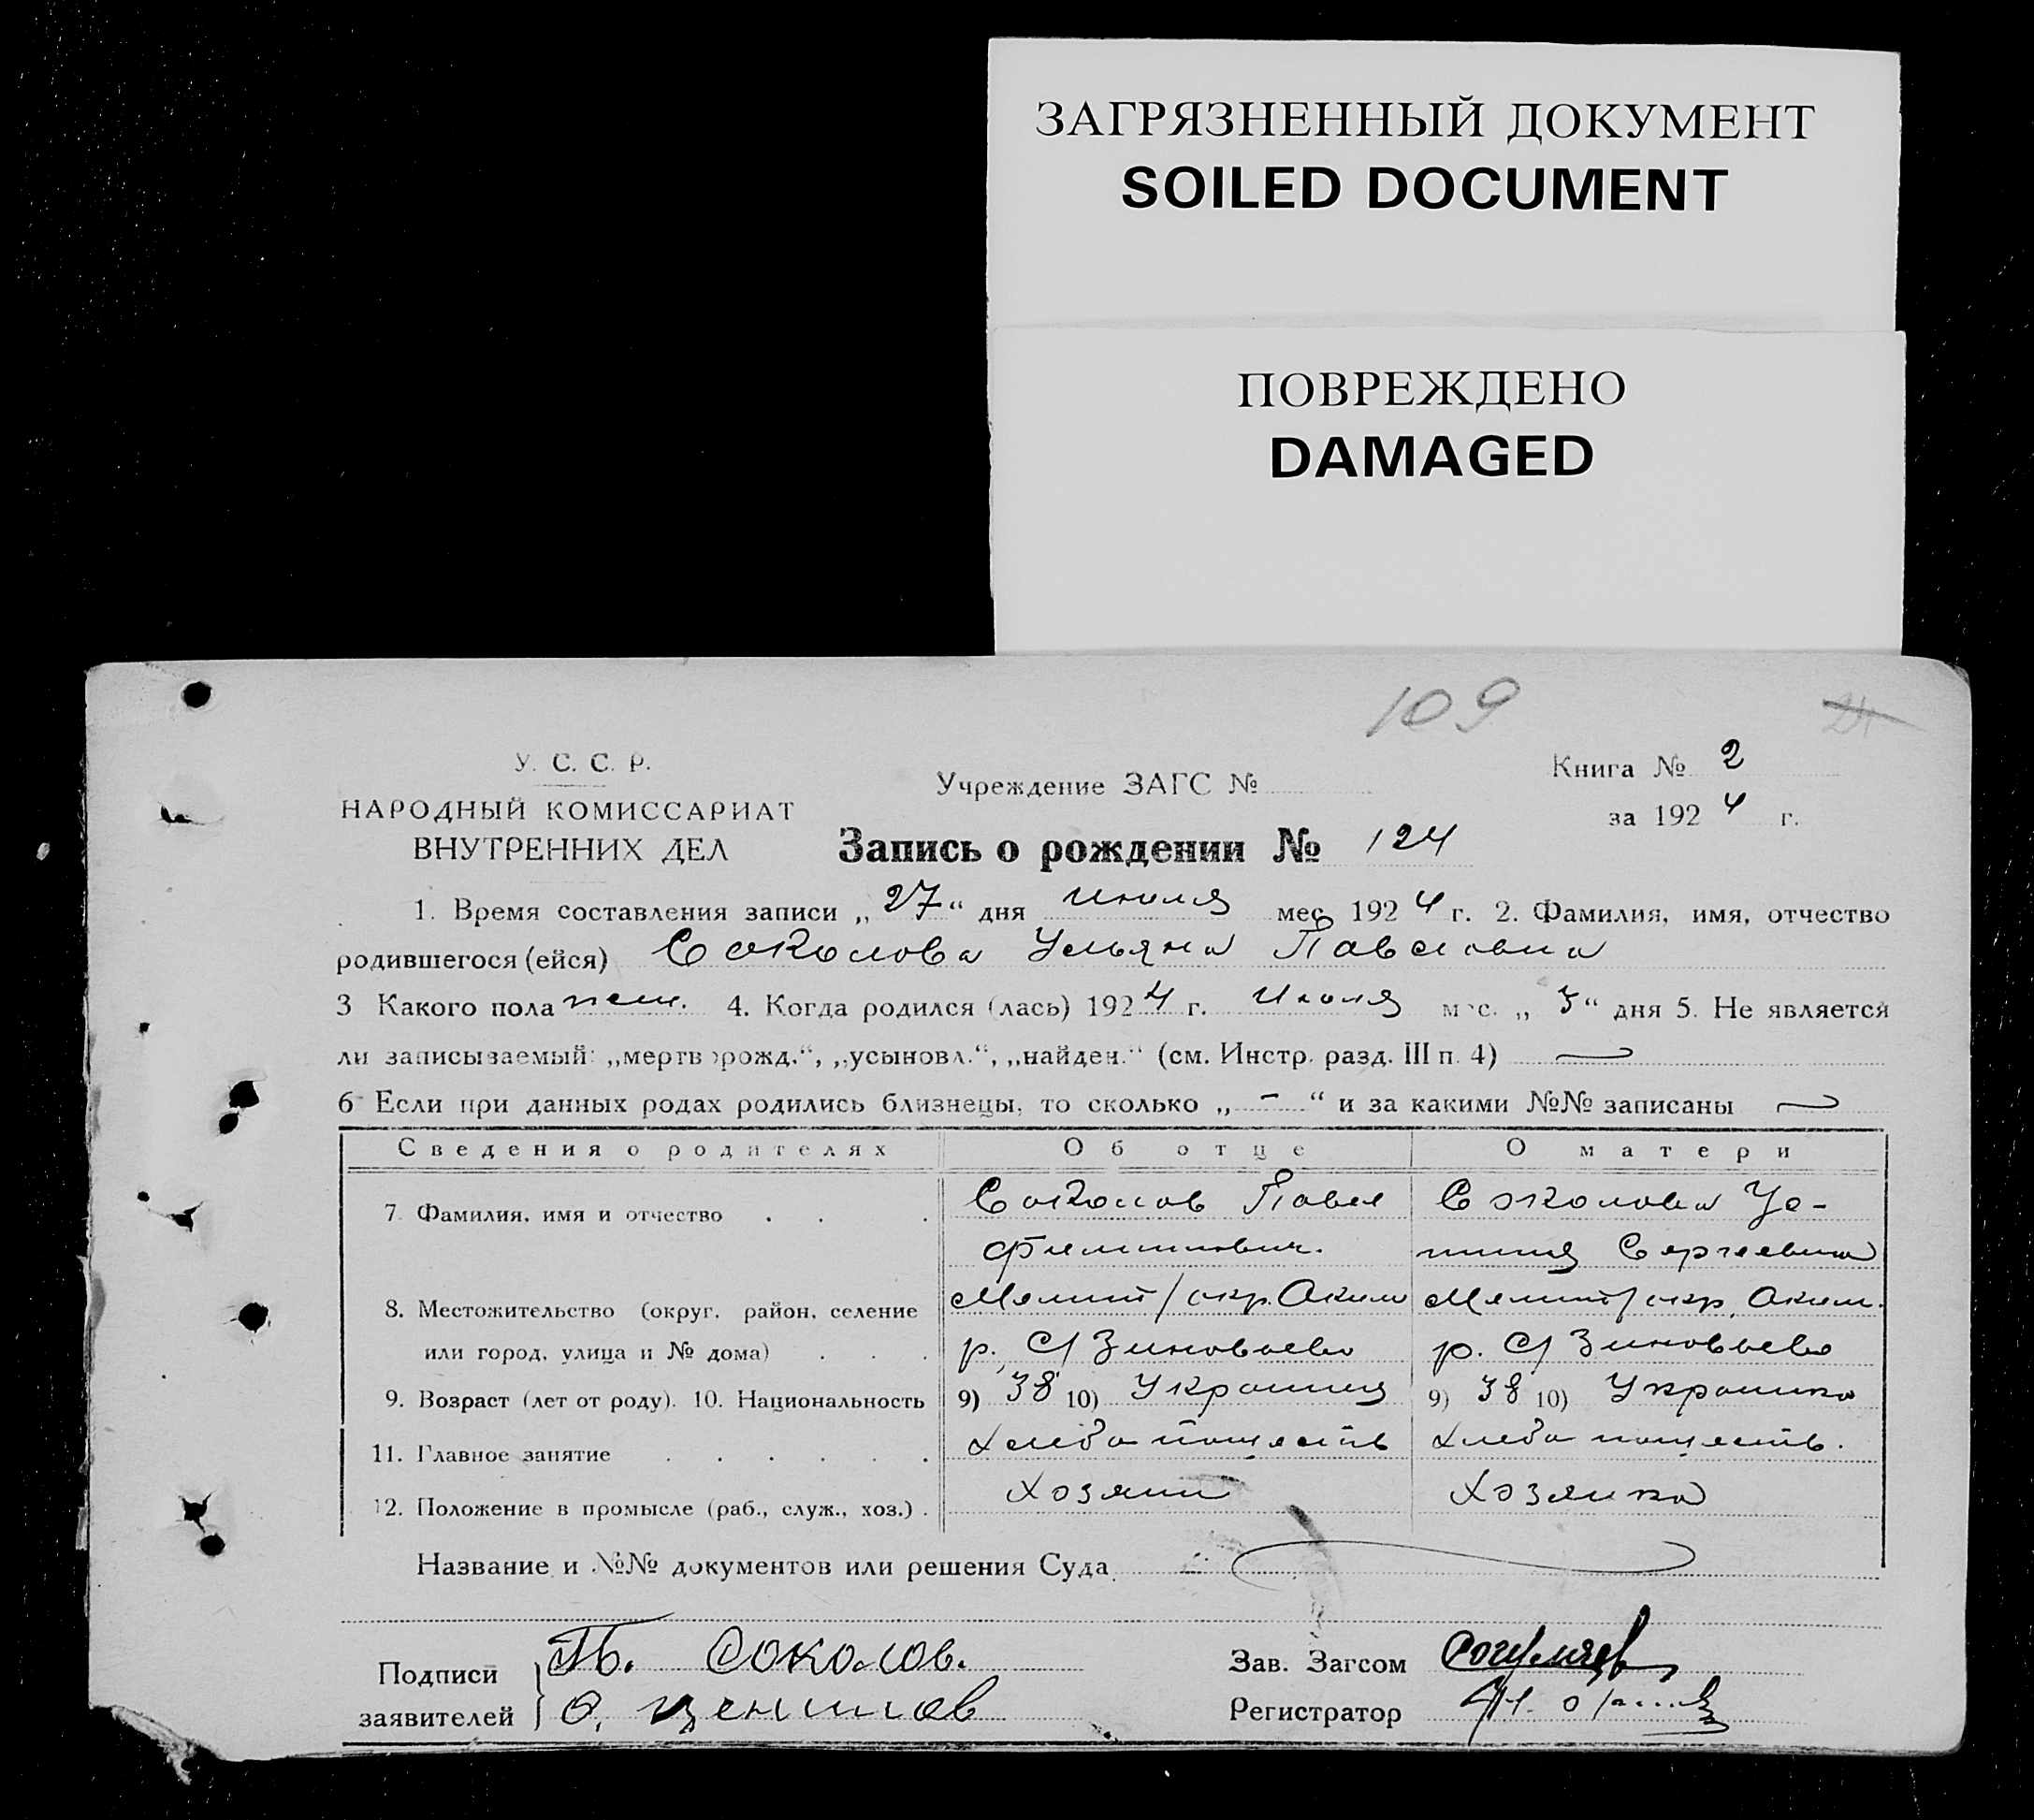 ЗАГРЯЗНЕННЫЙ ДОКУМЕНТ
SOILED DOCUMENT
ПОВРЕЖДЕНО
DAMAGED
109
У. С. С. Р.
НАРОДНЫЙ КОМИССАРИАТ
ВНУТРЕННИХ ДЕЛ
Учреждение ЗАГС №
Книга № 2
за 1924 г.
Запись о рождении № 124
1. Время составления записи „27“ дня июля мес. 1924 г. 2. Фамилия, имя, отчество
родившегося (ейся) Соколова Ульяна Павловна
3 Какого пола жен. 4. Когда родился (лась) 1924 г. Июля мес. „3“ дня 5. Не является
ли записываемый: „мертворожд.“, „усыновл.“, „найден.“ (см. Инстр. разд. III п. 4) —
6 Если при данных родах родились близнецы, то сколько „-“ и за какими №№ записаны —
Сведения о родителях Об отце О матери
7. Фамилия, имя и отчество . . . Соколов Павел Соколова
Филиппович. Сергеевна
8. Местожительство (округ, район, селение Мелит/окр. Аким Мелит/окр. Аким.
или город, улица и № дома) . . . р. С/ Зиновьево р. С/ Зиновьево
9. Возраст (лет от роду). 10. Национальность 9) 38 10) Украинец 9) 38 10) Украинка
11. Главное занятие . . . . . . Хлебопашеств Хлебопашеств.
12. Положение в промысле (раб., служ., хоз.) . Хозяин Хозяйка
Название и №№ документов или решения Суда
Подписи
заявителей
Соколов.
Зав. Загсом
Регистратор